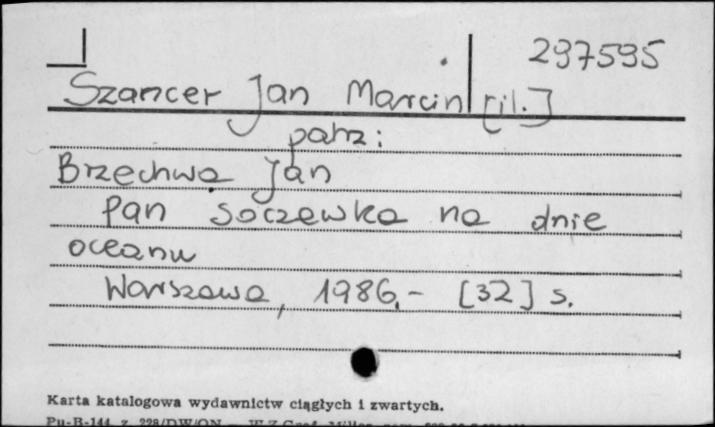 297595
Szancer Jan Marcin [il.]
patrz:
Brzechwa Jan
Pan Soczewka na dnie
oceanu
Warszawa, 1986.- [32] s.
Karta katalogowa wydawnictw ciągłych i zwartych.
Pu-B-144, z. 228/DW/ON